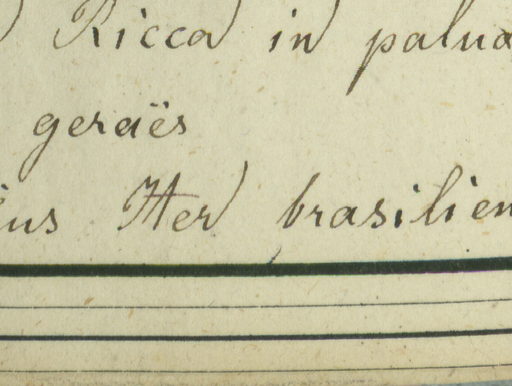 Ricca in palud
geraës
ius Iter brasilien